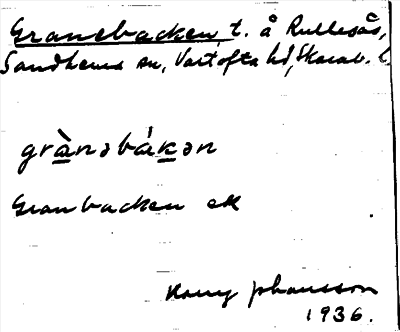 Granebacken, t. å Rullesås,
Sandhems sn, Vartofta hd, Skarab. l.
grànəbákən
Granbacken ek
Harry Johansson
1936.